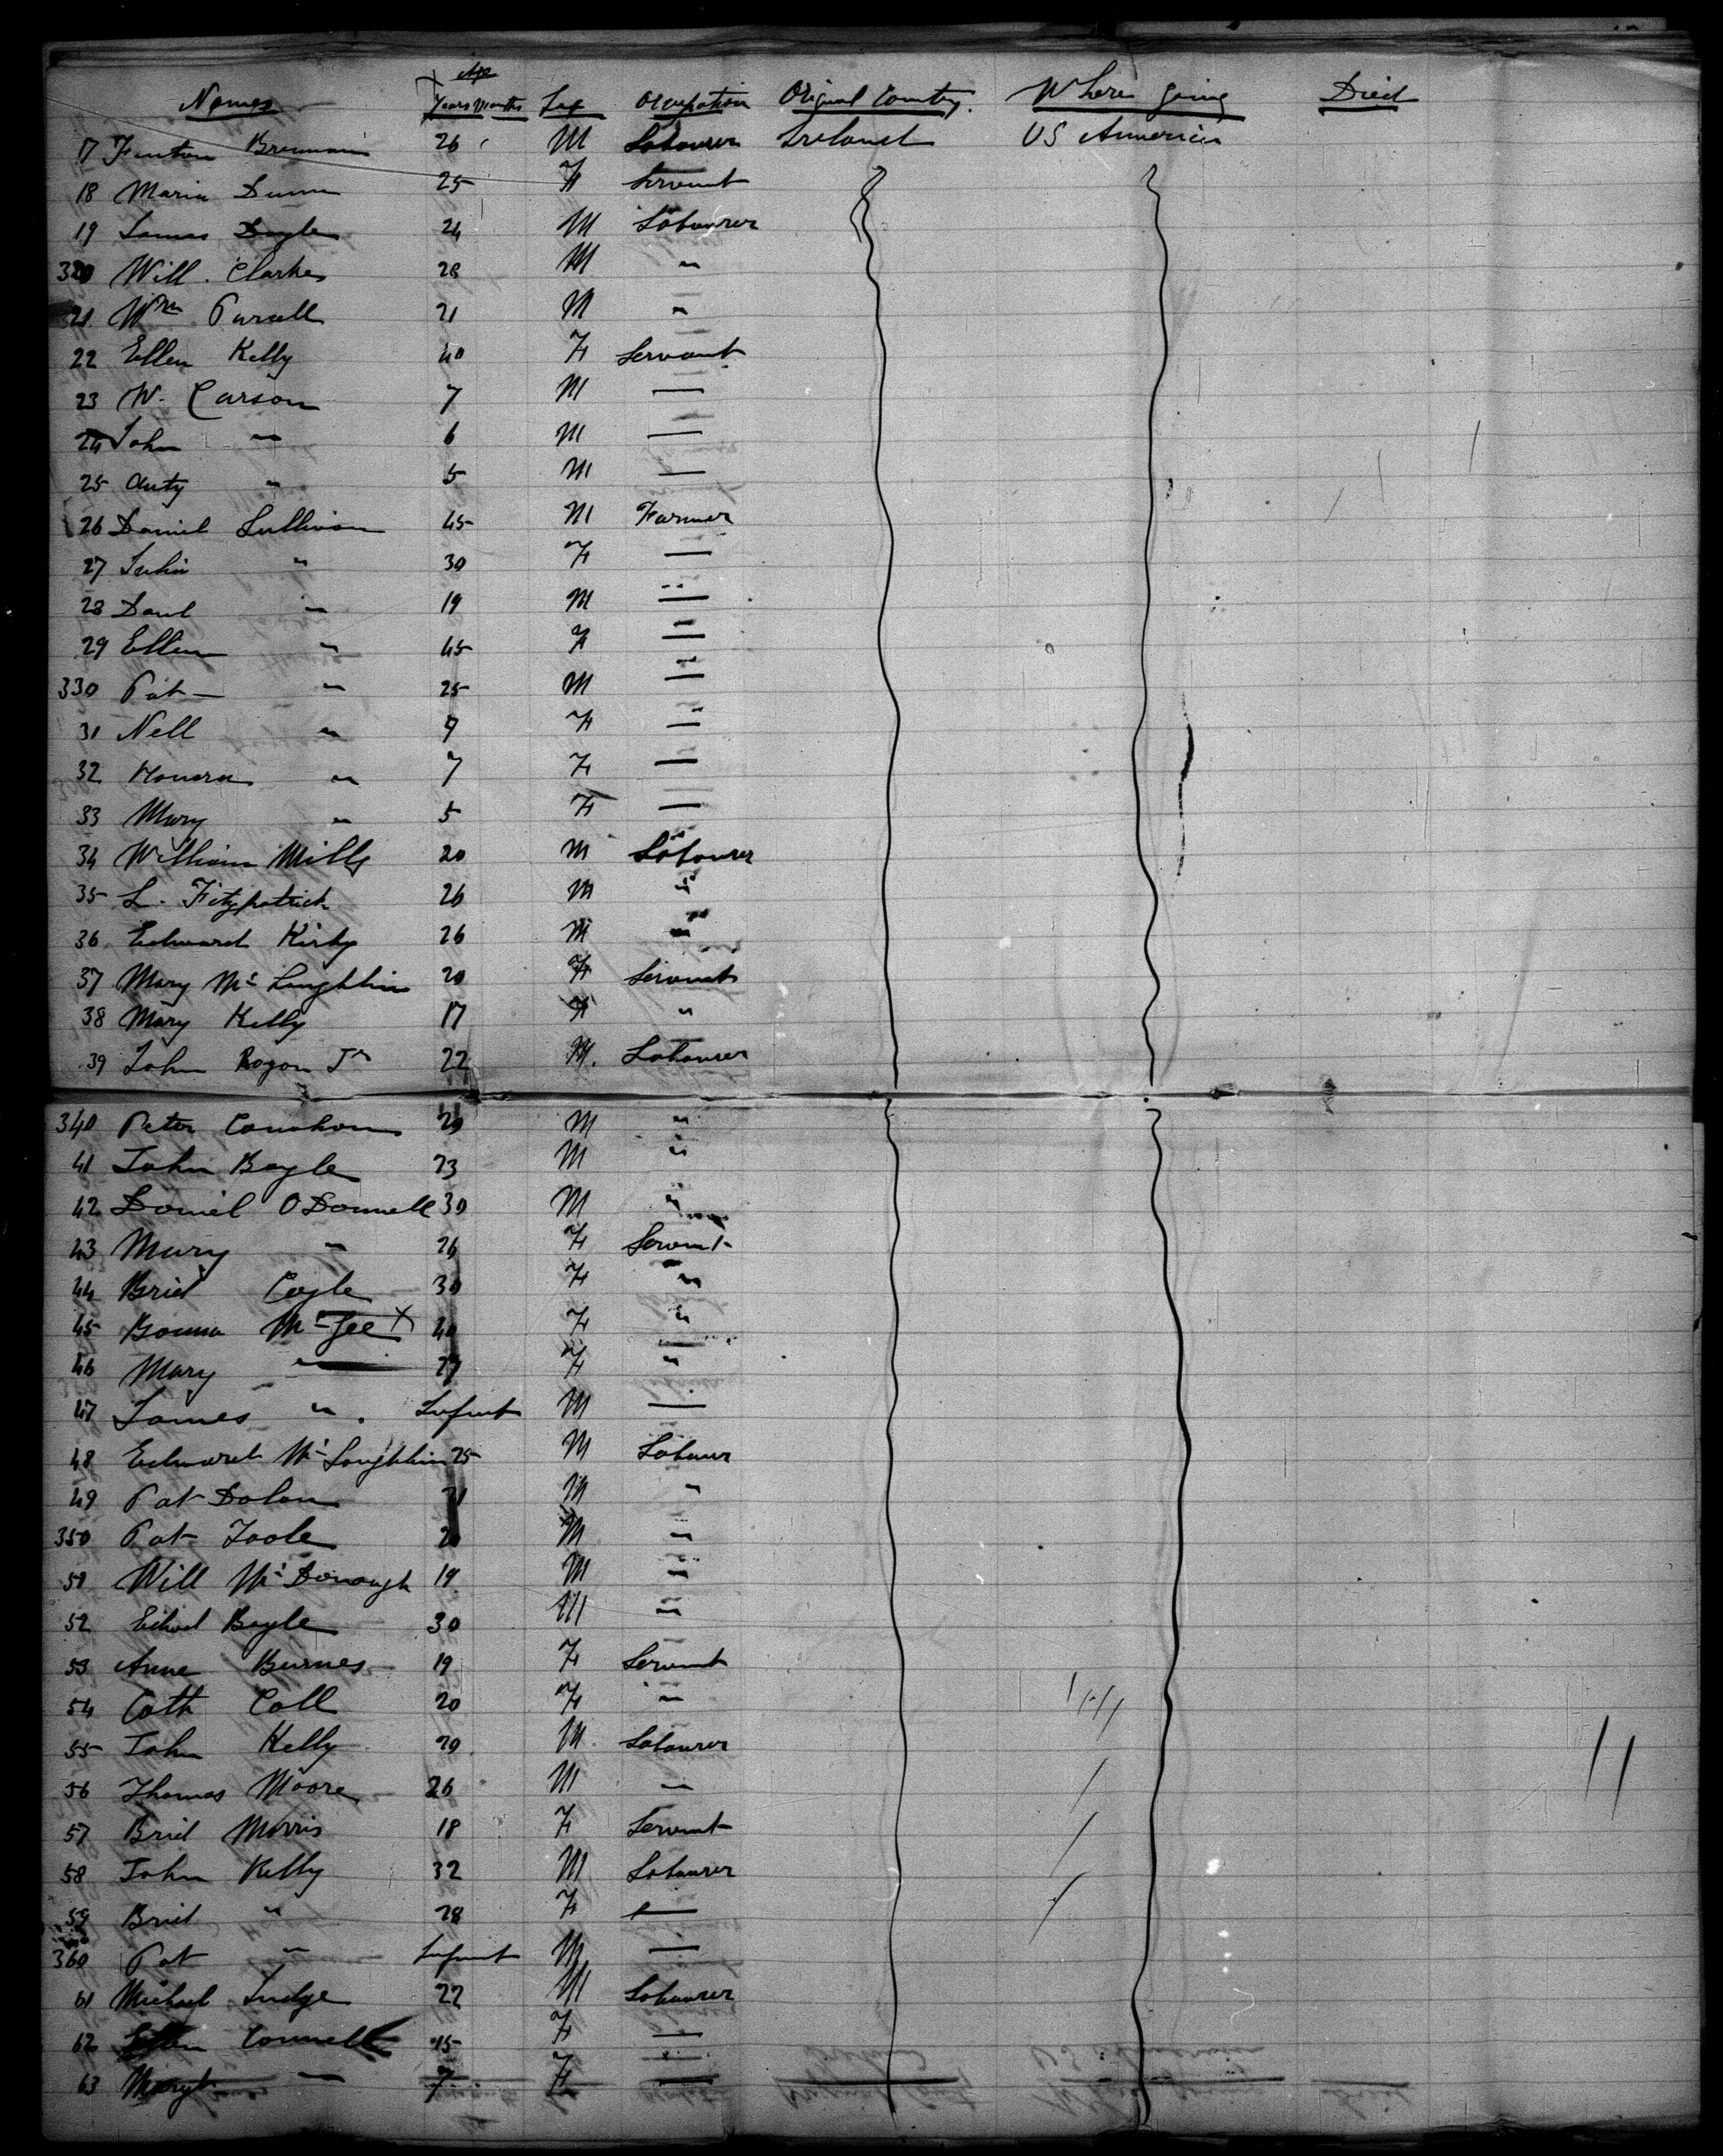 Age
Names Years Months Sex Occupation Original Country. Where going Died
17 Fenton Brennan 26 M Labourer Ireland US America
18 Maria Dunn 25 F Servant
19 James Doyle 24 M Labourer
320 Will. Clarke 28 M "
21. Wm Purcell 21 M "
22 Ellen Kelly 40 F Servant
23 W. Carson 7 M —
24 John " 6 M —
25 Anty " 5 M —
26 Daniel Sullivan 45 M Farmer
27 Julia " 30 F —
28 Danl " 19 M —
29 Ellen " 45 F —
330 Pat " 25 M —
31 Nell " 9 F —
32 Honora " 7 F —
33 Mary " 5 F —
34 William Mills 20 M Labourer
35 L. Fitzpatrick 26 M "
36 Edward Kirby 26 M "
37 Mary Mc Loughlin 20 F Servant
38 Mary Kelly 17 F "
39 John Rogan Jr 22 M. Labourer
340 Peter 29 M "
41 John Boyle 23 M "
42 Daniel O Donnell 30 M "
43 Mary " 26 F Servant
44 Brid Coyle 30 F "
45 McGee X 40 F "
46 Mary " 27 F "
47 James " Infant M —
48 Edward Mc Loughlin 25 M Labourer
49 Pat Dolan 21 M "
350 Pat Toole 20 M "
51 Will McDonough 19 M "
52 Edwd Boyle 30 M "
53 Anne Burnes 19 F Servant
54 Cath Coll 20 F "
55 John Kelly 20 M Labourer
56 Thomas Moore 26 M "
57 Brid Morris 18 F Servant
58 John Kelly 32 M Labourer
59 Brid " 28 F —
360 Pat " Infant M —
61 Michael Judge 22 M Labourer
62 Ellen Connell 45 F —
63 Mary " 7 F —